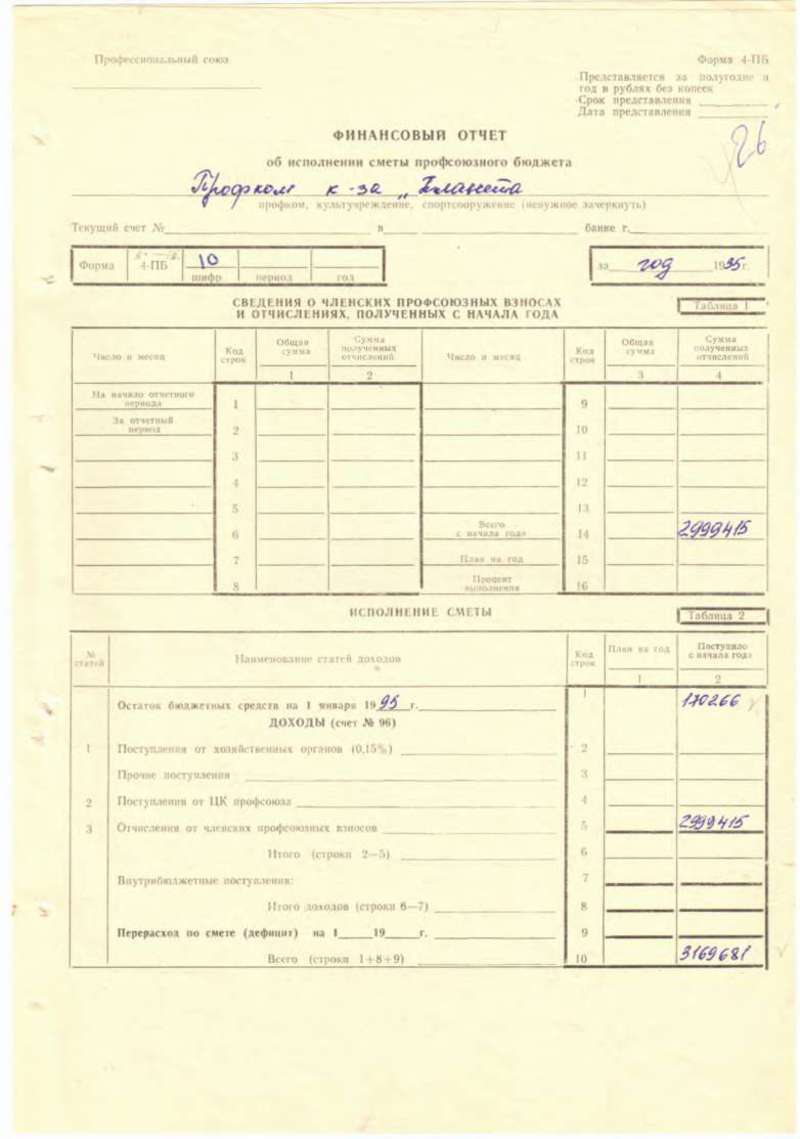 Профессиональный союз
Форма 4-ПБ
Представляется за полугодие и
год в рублях без копеек
Срок представления
Дата представления
26
ФИНАНСОВЫЙ ОТЧЕТ
об исполнении сметы профсоюзного бюджета
Профком к-за „Планета
профком, культучреждение, спортсооружение (ненужное зачеркнуть)
Текущий счет № в банке г.
Форма 4-ПБ 10
шифр период год
за год 1995г.
СВЕДЕНИЯ О ЧЛЕНСКИХ ПРОФСОЮЗНЫХ ВЗНОСАХ
И ОТЧИСЛЕНИЯХ, ПОЛУЧЕННЫХ С НАЧАЛА ГОДА
Таблица 1
Число и месяц Код строк Общая сумма Сумма полученных отчислений Число и месяц Код строк Общая сумма Сумма полученных отчислений
1 2 3 4
На начало отчетного периода 1 9
За отчетный период 2 10
3 11
4 12
5 13
6 Всего с начала года 14 2999415
7 План на год 15
8 Процент выполнения 16
ИСПОЛНЕНИЕ СМЕТЫ
Таблица 2
№ статей Наименование статей доходов Код строк План на год Поступило с начала года
1 2
Остаток бюджетных средств на 1 января 1995 г. 1 170266
ДОХОДЫ (счет № 96)
1 Поступления от хозяйственных органов (0,15%) 2
Прочие поступления 3
2 Поступления от ЦК профсоюза 4
3 Отчисления от членских профсоюзных взносов 5 2999415
Итого (строки 2—5) 6
Внутрибюджетные поступления: 7
Итого доходов (строки 6—7) 8
Перерасход по смете (дефицит) на 1 19 г. 9
Всего (строки 1+8+9) 10 3169681